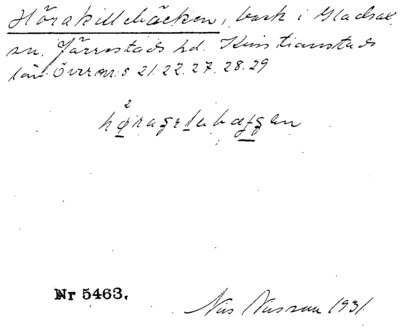 Hörakillebäcken, bäck i Gladsax
sn. Järrestads hd. Kristianstads
län Överm. s 21.22.27.28.29
Nr 5463.
Nils 1931